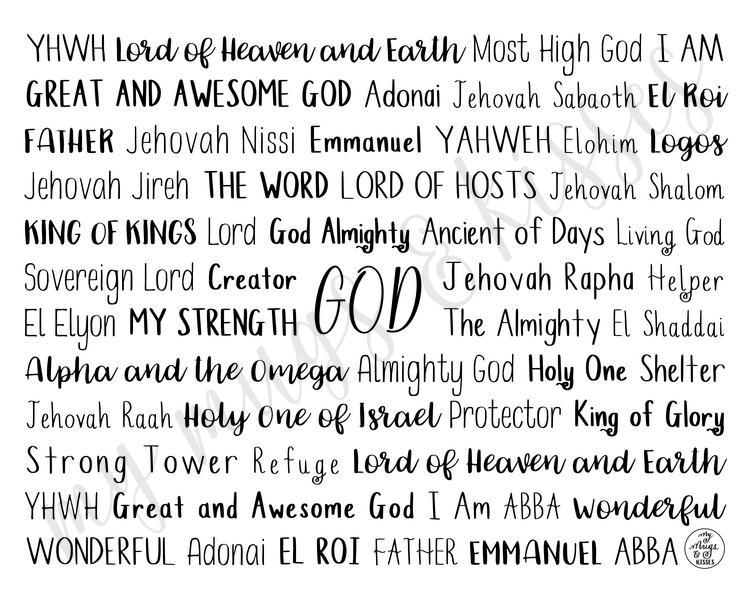 YHWH Lord of Heaven and Earth Most High God I AM
GREAT AND AWESOME GOD Adonai Jehovah Sabaoth El Roi
FATHER Jehovah Nissi Emmanuel YAHWEH Elohim Logos
Jehovah Jireh THE WORD LORD OF HOSTS Jehovah Shalom
KING OF KINGS Lord God Almighty Ancient of Days Living God
Sovereign Lord Creator GOD Jehovah Rapha Helper
El Elyon MY STRENGTH The Almighty El Shaddai
Alpha and the Omega Almighty God Holy One Shelter
Jehovah Raah Holy One of Israel Protector King of Glory
Strong Tower Refuge Lord of Heaven and Earth
YHWH Great and Awesome God I Am ABBA Wonderful
WONDERFUL Adonai EL ROI FATHER EMMANUEL ABBA
my
Mugs
&
KISSES
my mugs & kisses